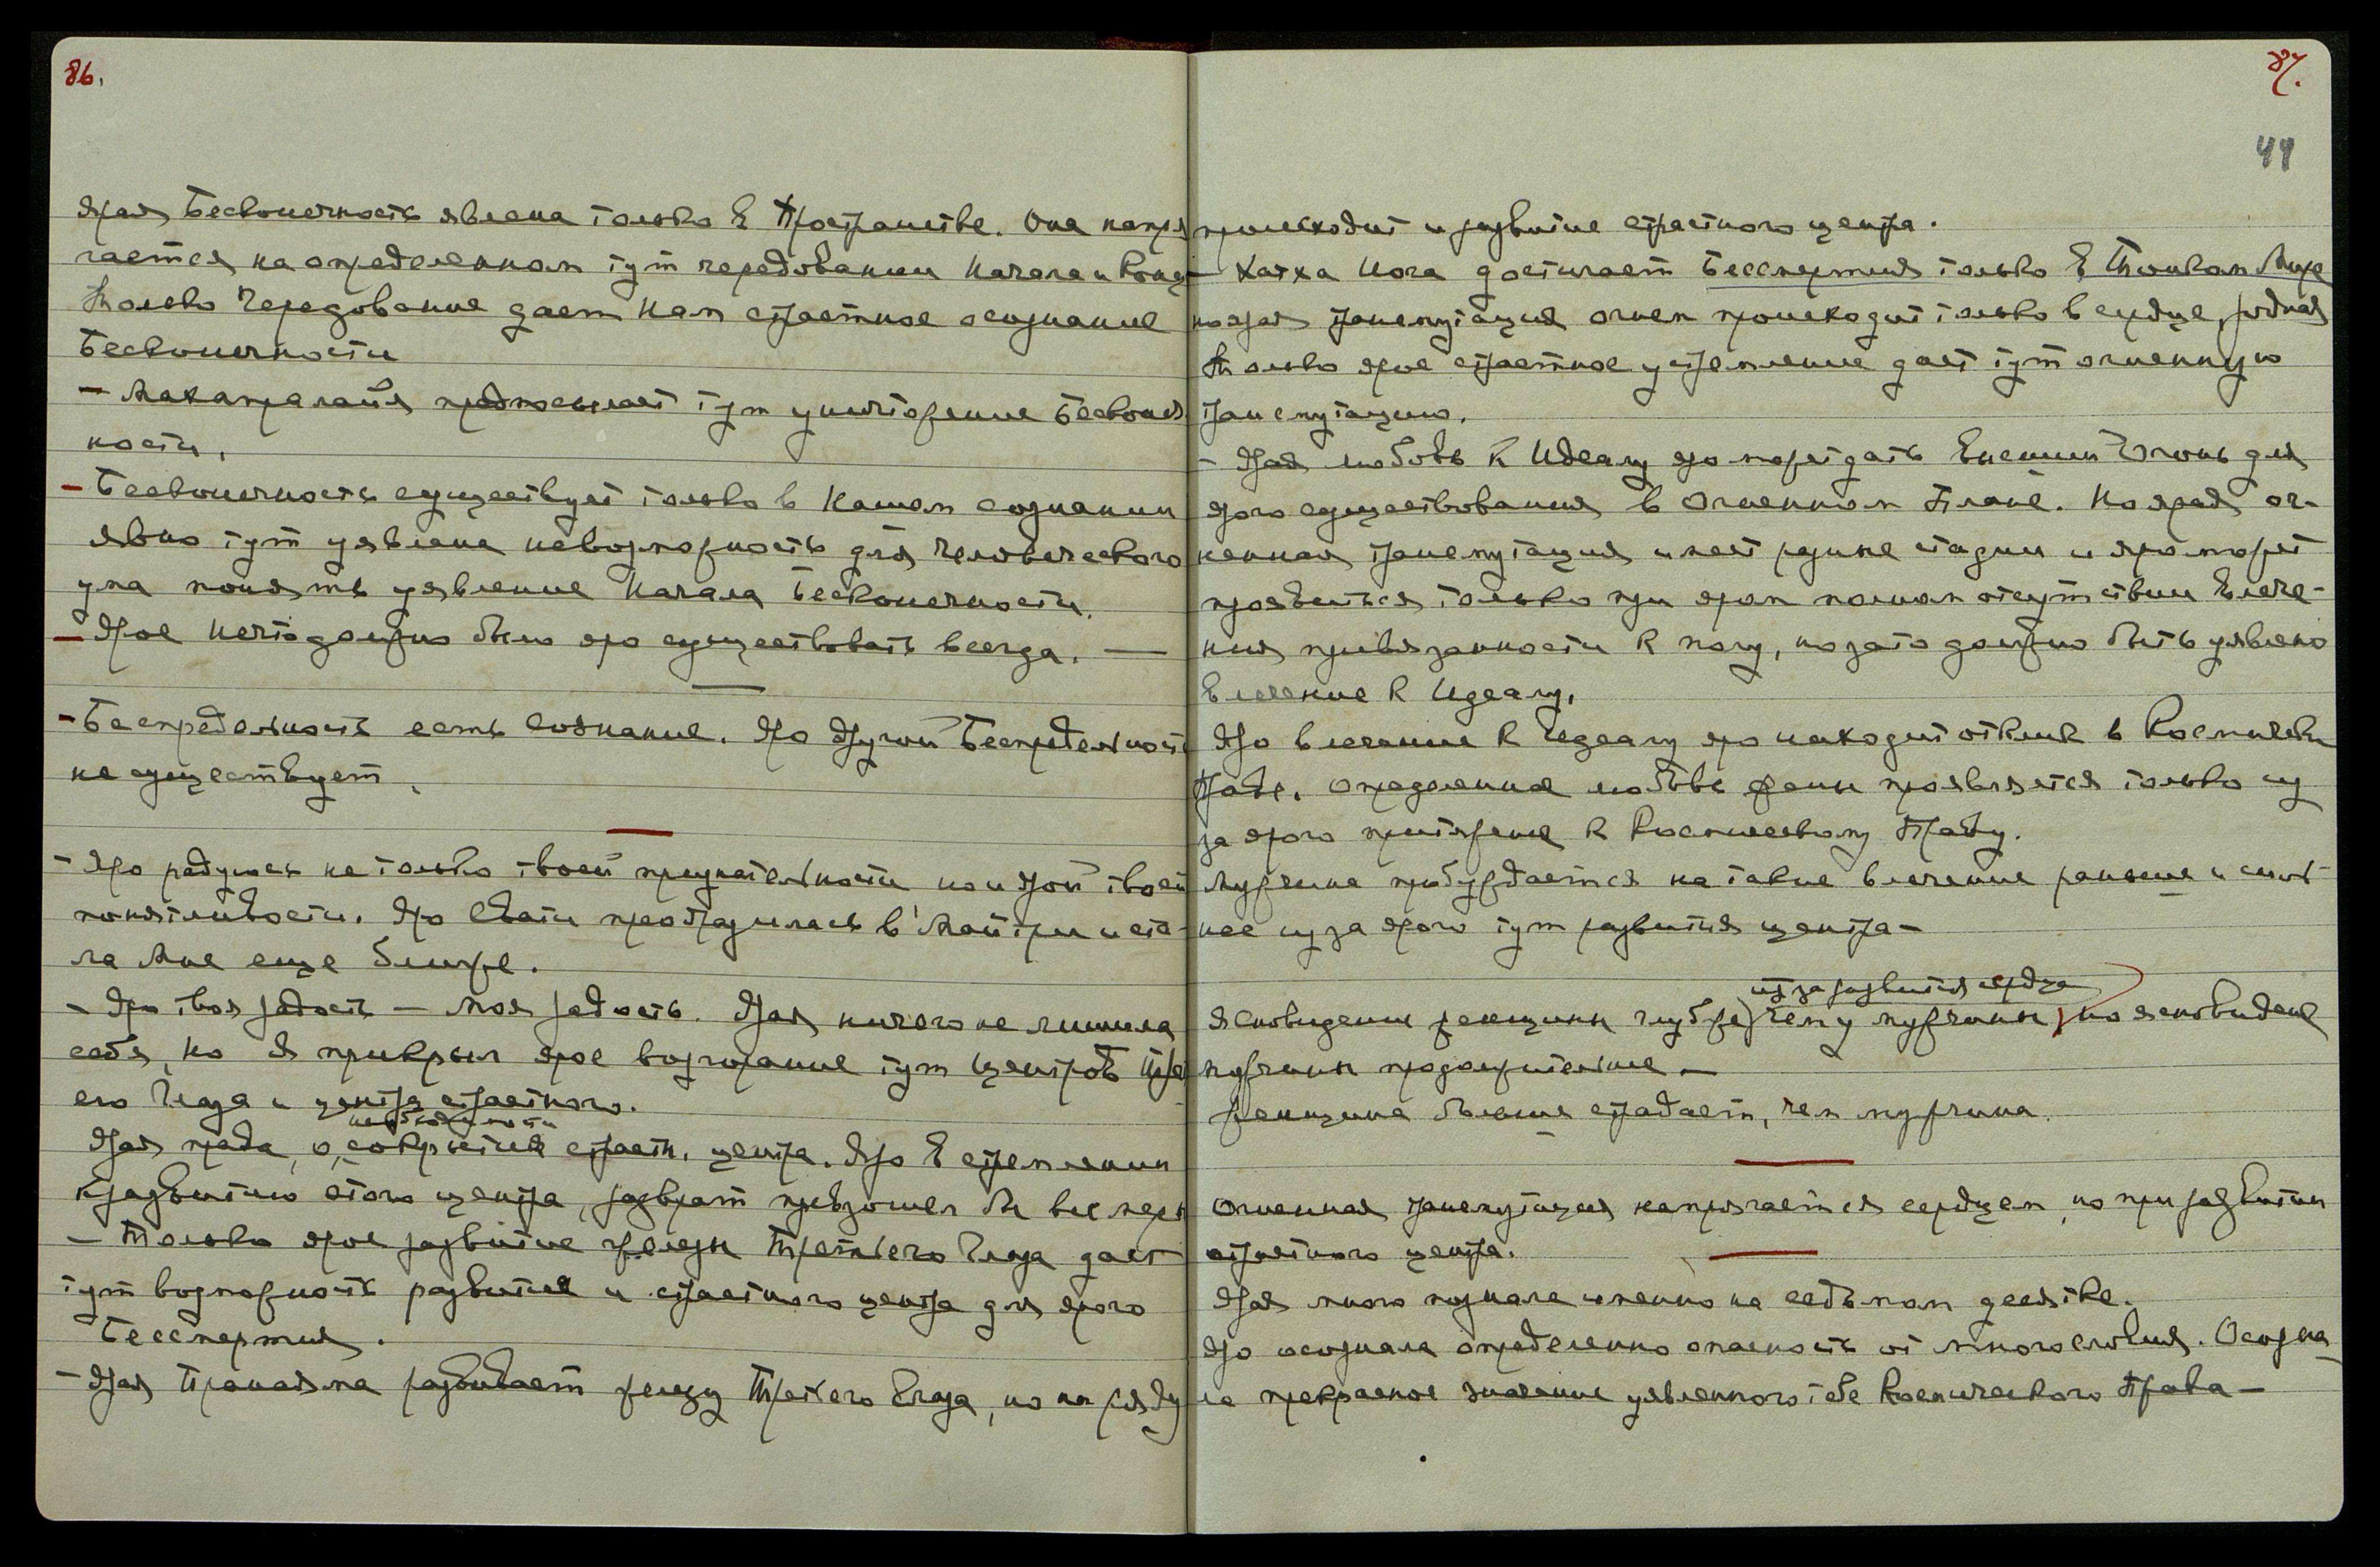 86.
Ярая Бесконечность явлена только в Пространстве. Она напря
гается на определенном тут чередовании Начала и Конца
Только Чередование дает Нам страстное осознание
Бесконечности
– Махапралайя предпосылает тут уничтожение Бесконеч
ности.
– Бесконечность существует только в Нашем сознании
явно тут уявлена невозможность для человеческого
ума понять уявление Начала Бесконечности.
– Ярое Нечто должно было яро существовать всегда. —
– Беспредельность есть Сознание. Яро Другой Беспредельности
не существует.
– Яро радуюсь не только твоей признательности но и ярой твоей
понятливости. Яро Свати преобразилась в Мойтри и ста-
ла Мне еще ближе.
– Яро твоя радость – Моя радость. Ярая ничего не лишила
себя, но Я прикрыл ярое возгорание тут Центров Треть
его Глаза и центра страстного.
необходимости
Ярая права о сокрытия страстн. центра. Яро в стремлении
к развитию этого центра, разврат превзошел бы все меры
– Только ярое развитие железы Третьего Глаза дает
тут возможность развития и страстного центра для ярого
Бессмертия.
– Ярая Пранаяма развивает железу Третьего Глаза, но на ряду
87.
44
происходит и развитие страстного центра.
– Хатха Иога достигает Бессмертия только в Тонком Мире
но ярая трансмутация огнем происходит только в сердце, родная
Только ярое страстное устремление дает тут огненную
трансмутацию.
– Ярая любовь к Идеалу яро может дать Высший Огонь для
ярого существования в Огненном Плане. Но ярая ог-
ненная трансмутация имеет разные стадии и яро может
проявиться только при яром полном отсутствии Влече-
ния привязанности к полу, но зато должно быть уявлено
Влечение к Идеалу.
Яро влечение к Идеалу яро находит отклик в Космическ
Праве. Определенная любовь жены проявляется только из
за ярого притяжения к Космическому Праву.
Мужчина пробуждается на такие влечения раньше и силь-
нее из за ярого тут развития центра –
из за развития сердца
Ясновидении женщины глубже, чему мужчины, но ясновидение
мужчины продолжительнее –
Женщина больше страдает, чем мужчина.
Огненная трансмутация напрягается сердцем, но при развитии
страстного центра.
Ярая много познала именно на седьмом десятке.
Яро осознала определенно опасность от многословия. Осозна
ла прекрасное значение уявленного тебе Космического Права –